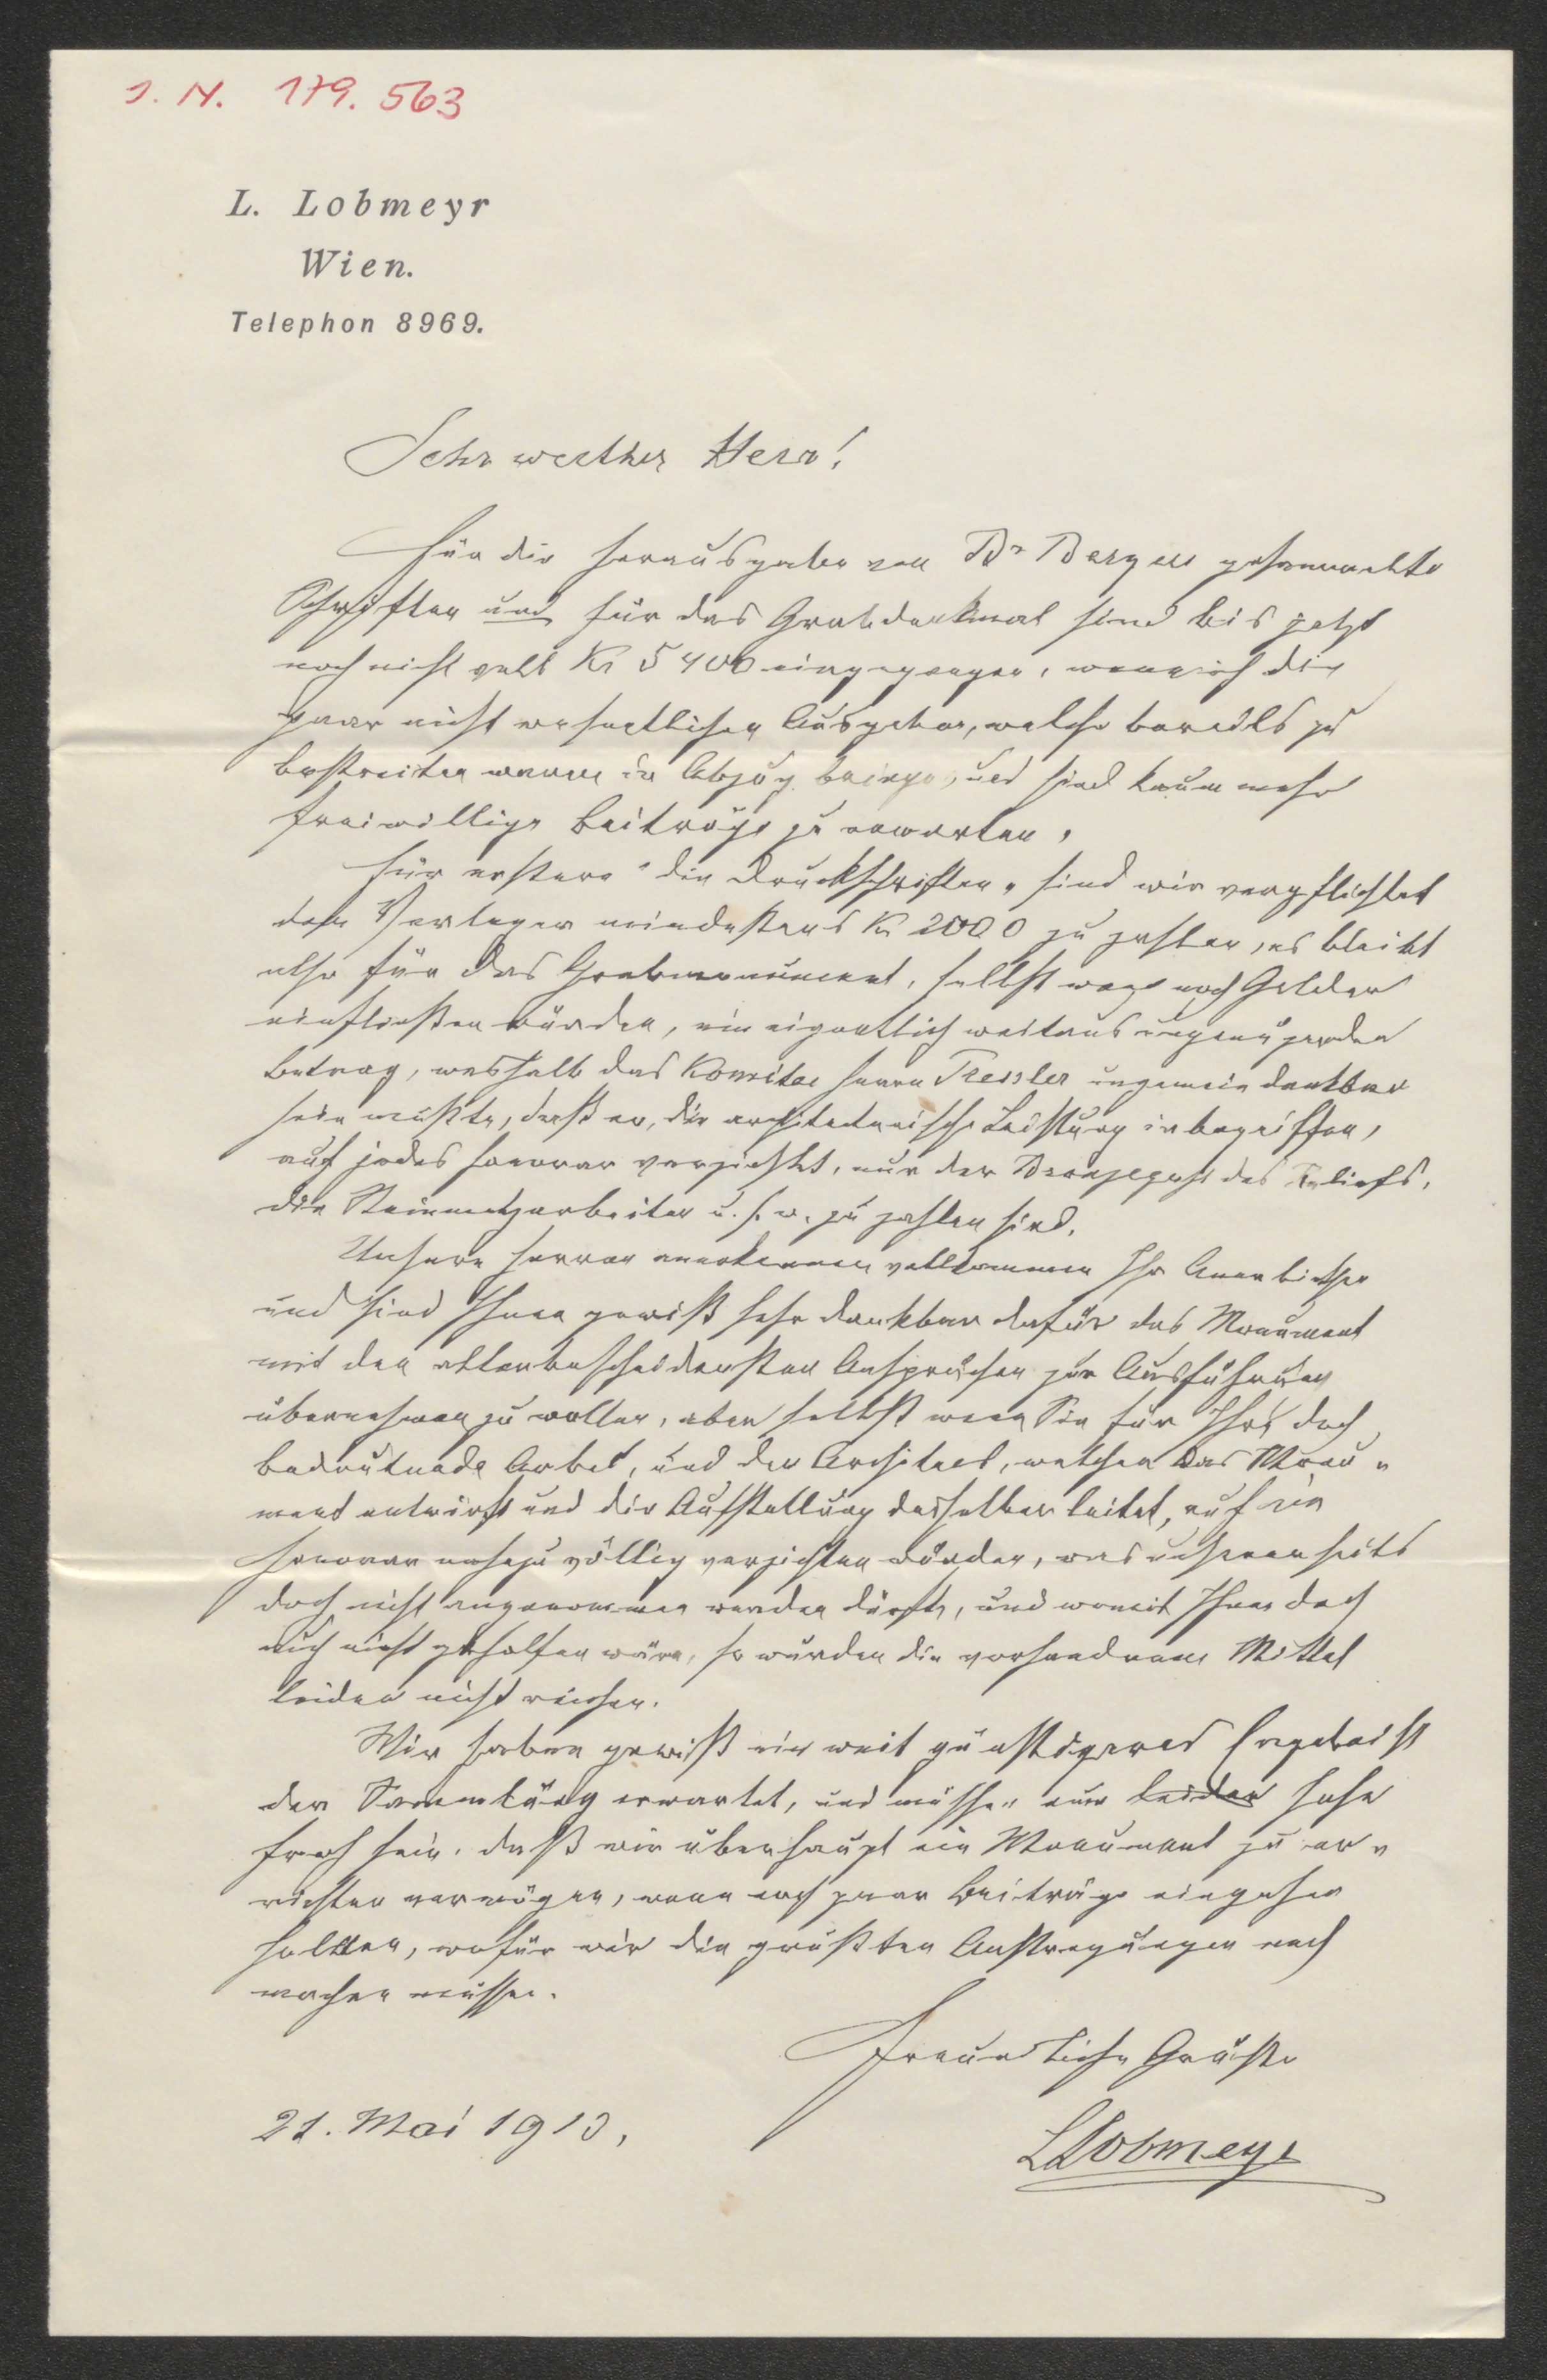 J. N. 179.563
L. Lobmeyr
Wien.
Telephon 8969.
Sehr werther Herr!
Für die Herausgabe von Dr Bergers gesammelte
Schriften und für das Grabdenkmal sind bis jetzt
noch nicht voll Kr 5400 eingegangen, wenn ich die
paar nicht wesentlichen Ausgaben, welche bereits zu
bestreiten waren in Abzug bringe, und sind kaum mehr
freiwillige Beiträge zu erwarten,
Für erstere "die Druckschriften" sind wir verpflichtet
dem Verleger mindestens Kr 2000 zu zahlen, es bleibt
also für das Grabmonument, selbst wenn noch Gelder
einfließen würden, ein eigentlich weitaus ungenügender
Betrag, weshalb das Komitee Herrn Tressler ungemein dankbar
sein müßte, daß er, die architectonische Leistung inbegriffen,
auf jedes Honorar verzichtet, nur der Bronzeguß des Reliefs,
die Steinmetzarbeiten u. s. w. zu zahlen sind.
Unsere Herren anerkennen vollkommen Ihr Anerbiethen
und sind Ihnen gewiß sehr dankbar dafür das Monument
mit den allerbescheidensten Ansprüchen zur Ausführung
übernehmen zu wollen, aber selbst wenn Sie für Ihre doch
bedeutende Arbeit, und der Architect, welcher das Monu-
ment entwirft und die Aufstellung desselben leitet, auf ein
Honorar nahezu völlig verzichten würden, was unsererseits
doch nicht angenommen werden dürfte, und womit Ihnen doch
auch nicht geholfen wäre, so würden die vorhandenen Mittel
leider nicht reichen.
Wir haben gewiß ein weit günstigeres Ergebniß
der Sammlung erwartet, und müssen nun leider sehr
froh sein, daß wir überhaupt ein Monument zu er-
richten vermögen, wenn noch paar Beiträge eingehen
sollten, wofür wir die größten Anstrengungen noch
machen müssen.
Freundliche Grüße
21. Mai 1913,
LLobmeyr